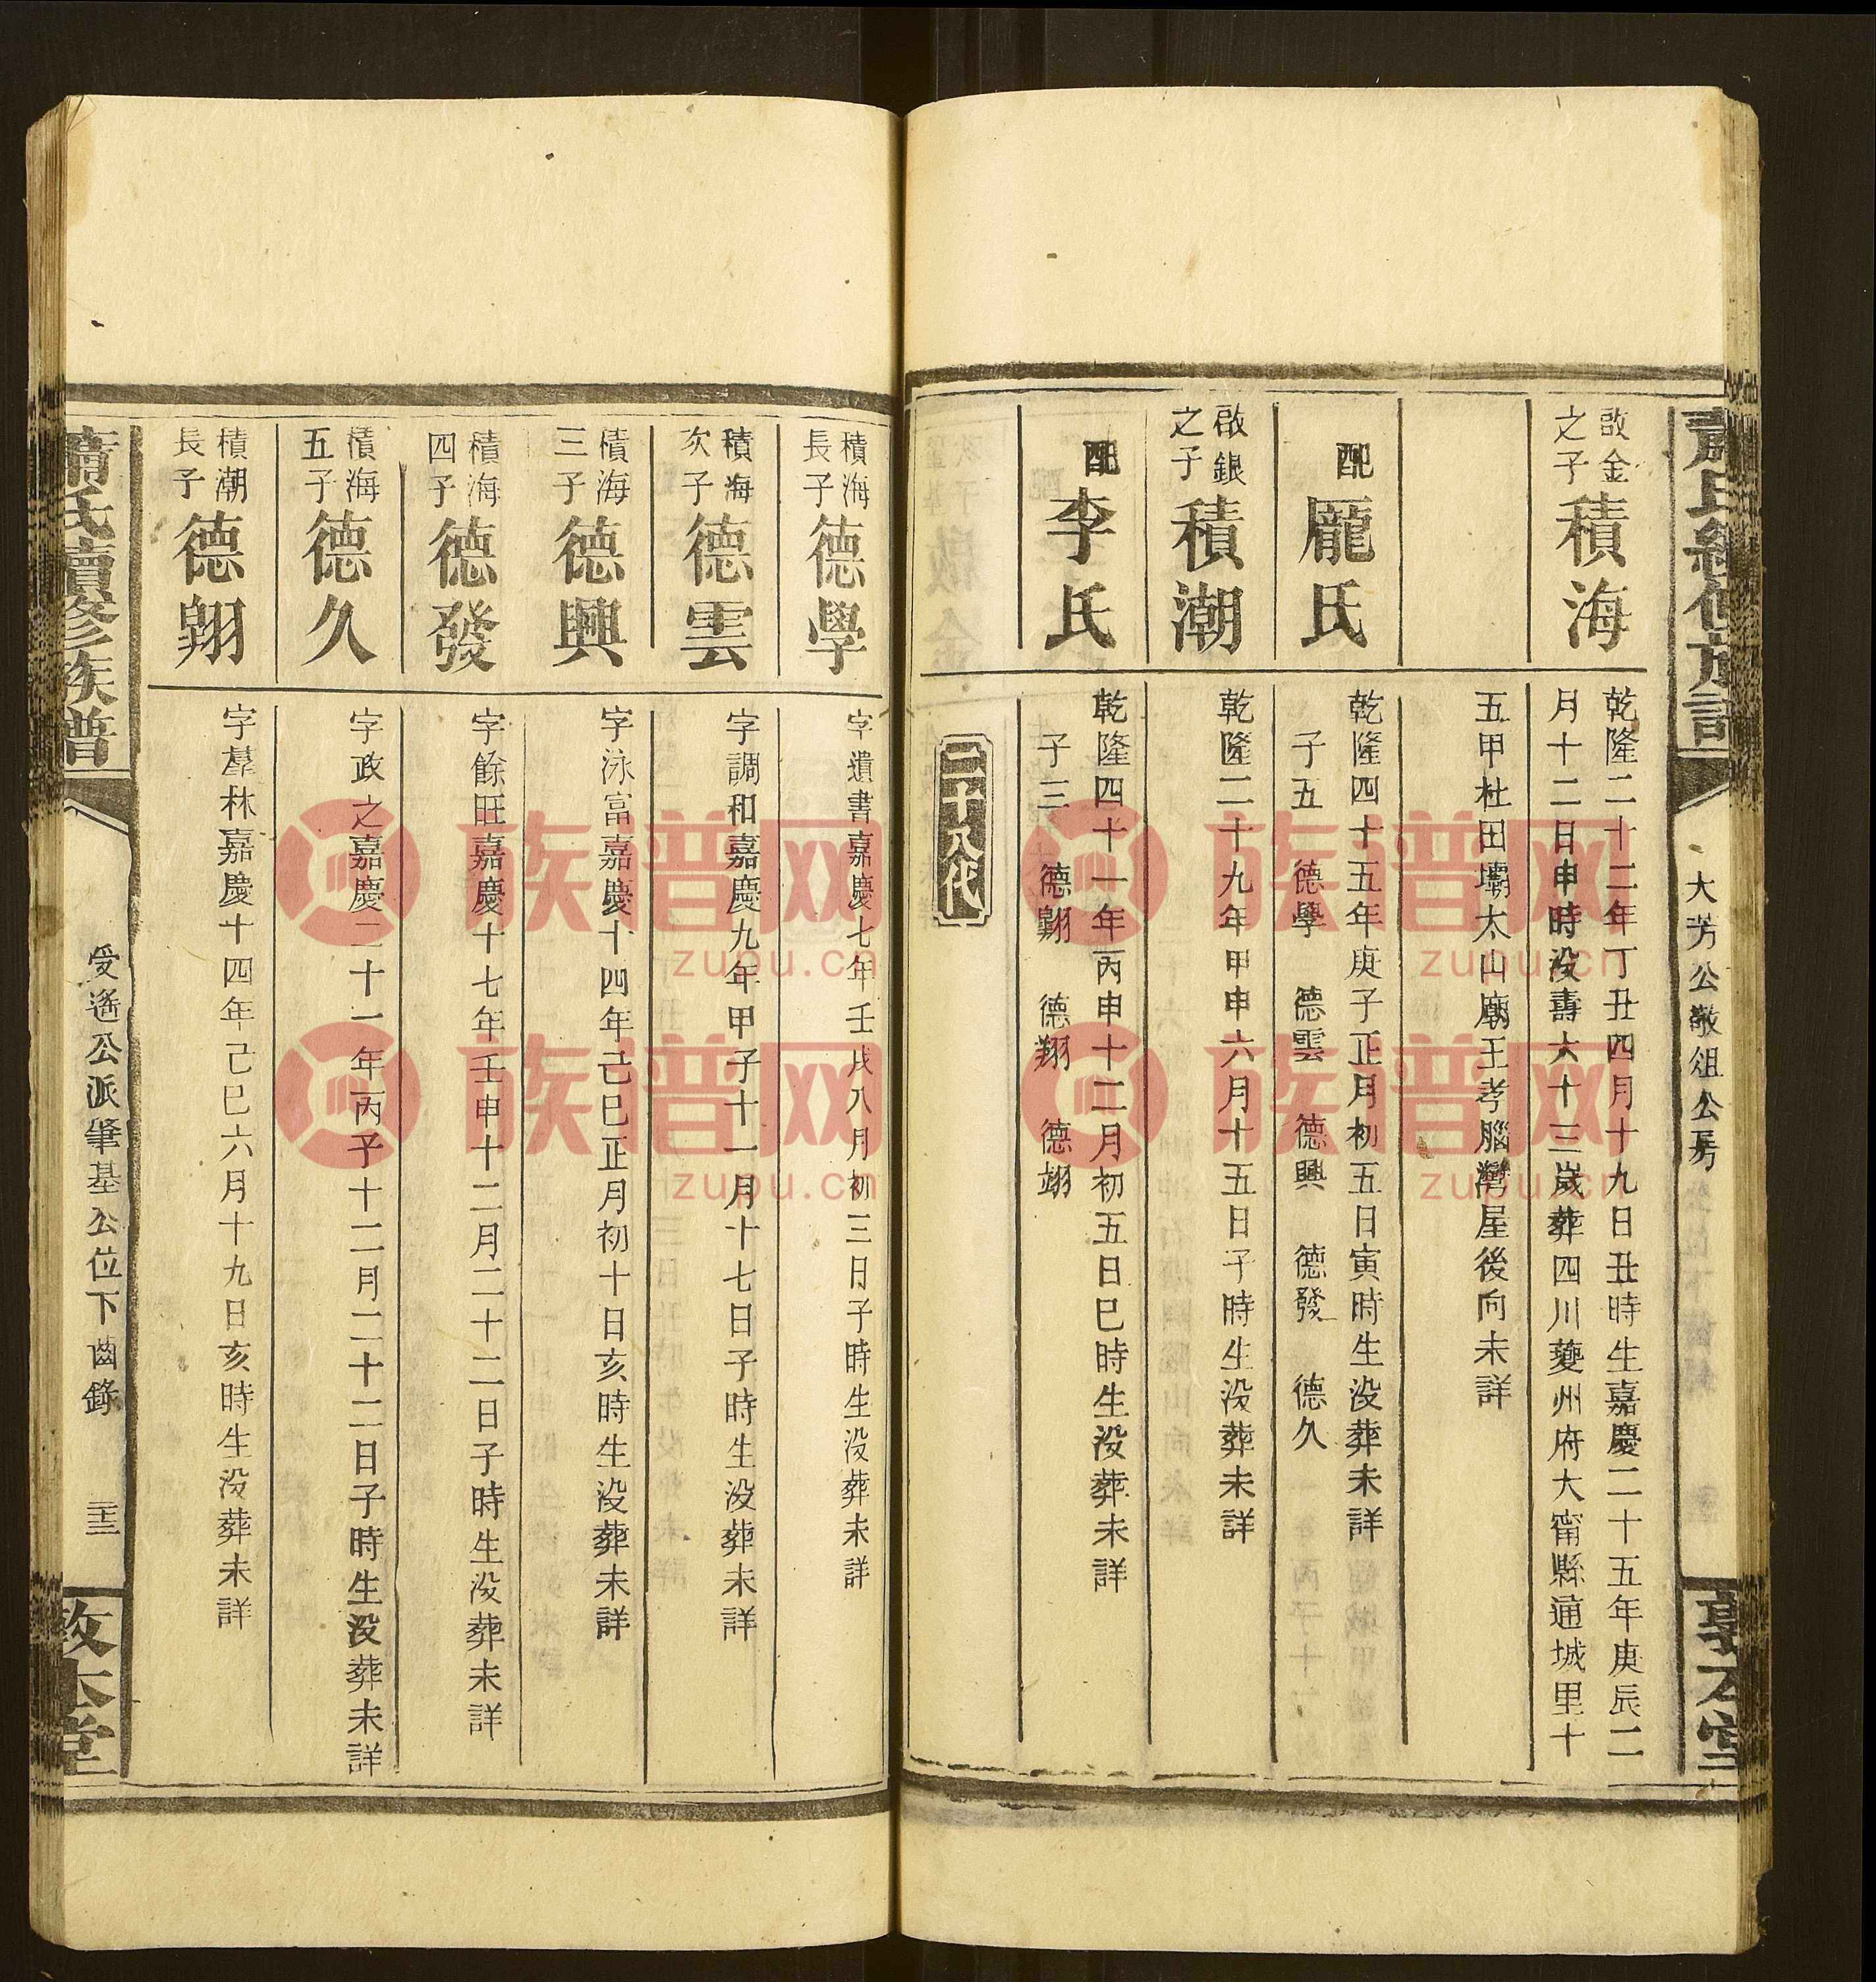 大芳公敬俎公房
啟金
之子
積海
乾隆二十二年丁丑四月十九日丑時生嘉慶二十五年庚辰二
月十二日申時没壽六十三歲葬四川夔州府大甯縣通城里十
五甲杜田壩太山廟王孝腦灣屋後向未詳
配
龎氏
乾隆四十五年庚子正月初五日寅時生没葬未詳
子五 德學 德雲 德興 德發 德久
啟銀
之子
積潮
乾隆二十九年甲申六月十五日子時生没葬未詳
配
李氏
乾隆四十一年丙申十二月初五日巳時生没葬未詳
子三 德翺 德翔 德翊
二十八代
積海
長子
德學
字遺書嘉慶七年壬戌八月初三日子時生没葬未詳
積海
次子
德雲
字調和嘉慶九年甲子十一月十七日子時生没葬未詳
積海
三子
德興
字泳富嘉慶十四年己巳正月初十日亥時生没葬未詳
積海
四子
德發
字餘旺嘉慶十七年壬申十二月二十二日子時生没葬未詳
積海
五子
德久
字政之嘉慶二十一年丙子十二月二十二日子時生没葬未詳
積潮
長子
德翺
林嘉慶十四年己巳六月十九日亥時生没葬未詳
蕭氏續修族譜
受遙公派肇基公位下齒錄
敦本堂
族谱网
zupu.cn
族谱网
zupu.cn
族谱网
zupu.cn
族谱网
zupu.cn